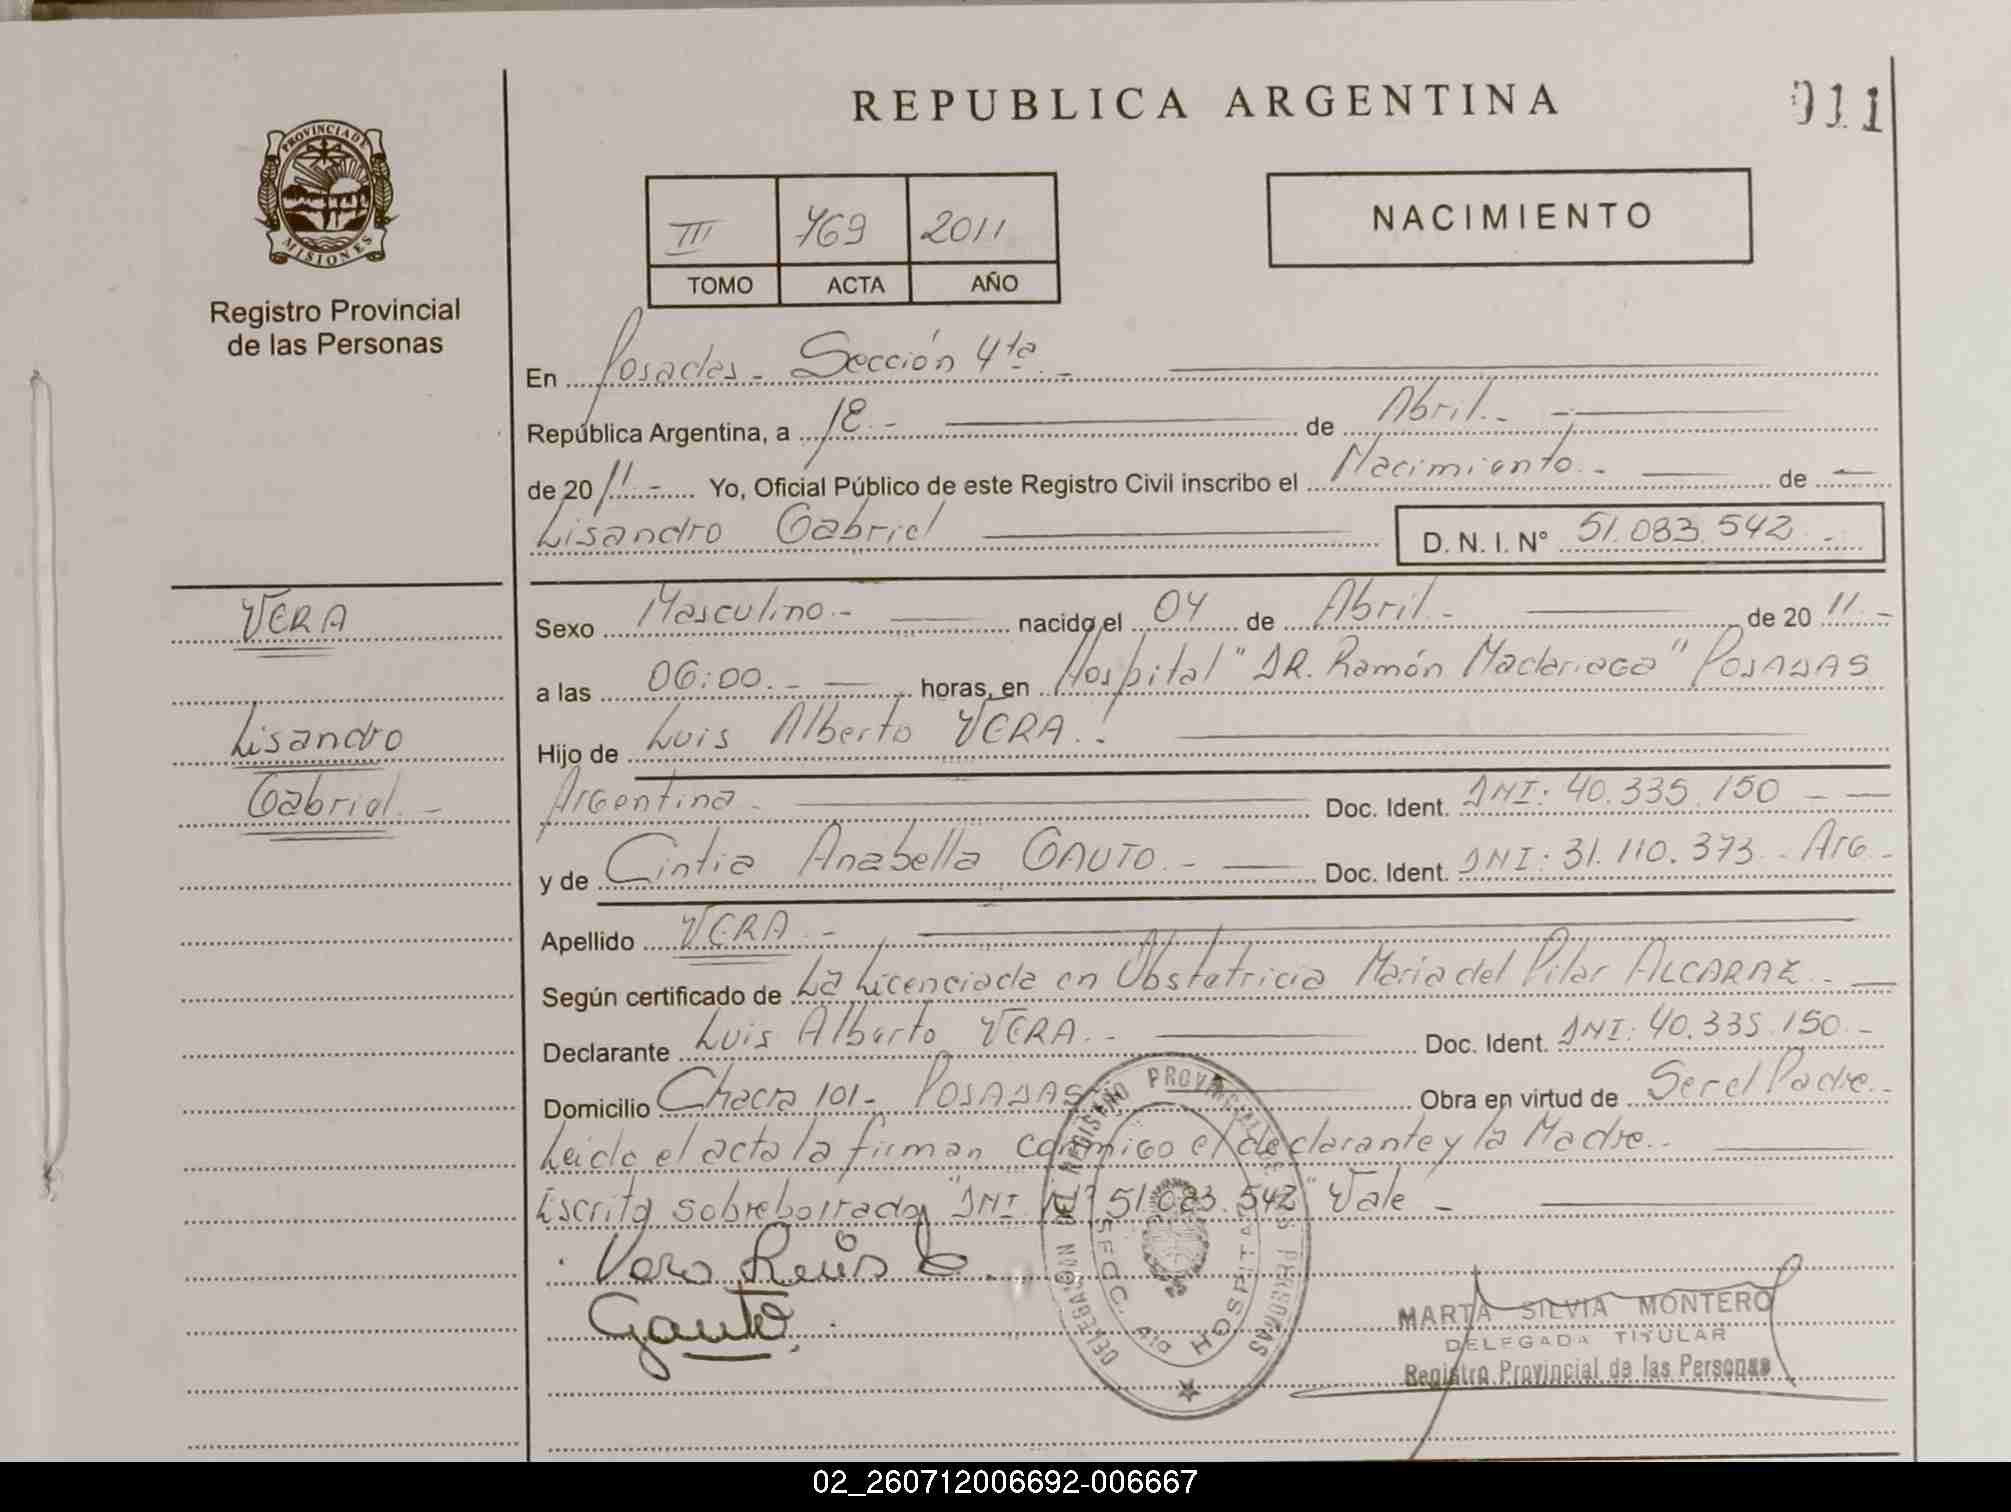 REPUBLICA ARGENTINA
011
PROVINCIA DE
MISIONES
Registro Provincial
de las Personas
III 769 2011
TOMO ACTA AÑO
NACIMIENTO
En Posadas - Sección 4ta -
República Argentina, a 18.- de Abril.-
de 2011.- Yo, Oficial Público de este Registro Civil inscribo el Nacimiento.- de
Lisandro Gabriel D. N. I. N° 51.083.542.-
VERA
Lisandro
Gabriel.-
Sexo Masculino.- nacido el 04 de Abril.- de 2011.-
a las 06:00.- horas, en Hospital "DR. Ramón Madariaga" POSADAS
Hijo de Luis Alberto VERA.
Argentina. Doc. Ident. DNI: 40.335.150
y de Cintia Anabella GAUTO.- Doc. Ident. DNI: 31.110.373 - Arg.-
Apellido VERA.-
Según certificado de La Licenciada en Obstetricia Maria del Pilar ALCARAZ.-
Declarante Luis Alberto VERA.- Doc. Ident. DNI: 40.335.150.-
Domicilio Chacra 101- POSADAS Obra en virtud de Ser el Padre.-
Leida el acta la firman conmigo el declarante y la Madre.-
Escrito sobreborrado "DNI N° 51.083.542" Vale -
Vera Luis
Gauto
DELEGACION DEL REGISTRO PROVINCIAL DE LAS PERSONAS
SECC. 4ta HOSPITAL
MARTA SILVIA MONTERO
DELEGADA TITULAR
Registro Provincial de las Personas
02_260712006692-006667